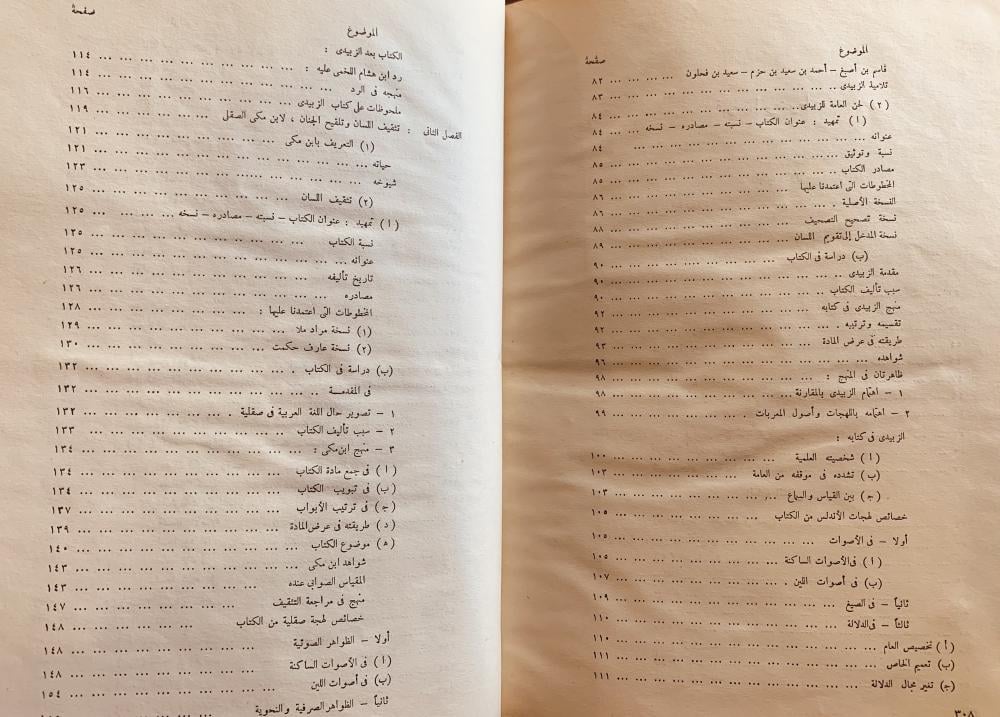 الموضوع
صفحة
قاسم بن أصبغ – أحمد بن سعيد بن حزم – سعيد بن فحلون ... ... ... ٨٢
تلاميذ الزبيدى ... ... ... ... ... ... ... ... ... ٨٣
(٢) لحن العامة للزبيدى ... ... ... ... ... ... ... ... ٨٤
(ا) تمهيد : عنوان الكتاب – نسبته – مصادره – نسخه ... ... ... ٨٤
عنوانه ... ... ... ... ... ... ... ... ... ٨٤
نسبة وتوثيق ... ... ... ... ... ... ... ... ... ٨٥
مصادر الكتاب ... ... ... ... ... ... ... ... ... ٨٥
المخطوطات التى اعتمدنا عليها ... ... ... ... ... ... ... ٨٦
النسخة الأصلية ... ... ... ... ... ... ... ... ... ٨٦
نسخة تصحيح التصحيف ... ... ... ... ... ... ... ... ٨٨
نسخة المدخل إلى تقويم اللسان ... ... ... ... ... ... ... ٨٩
(ب) دراسة فى الكتاب ... ... ... ... ... ... ... ... ٩٠
مقدمة الزبيدى ... ... ... ... ... ... ... ... ... ٩٠
سبب تأليف الكتاب ... ... ... ... ... ... ... ... ٩٠
منهج الزبيدى فى كتابه ... ... ... ... ... ... ... ... ٩٢
تقسيمه وترتيبه ... ... ... ... ... ... ... ... ... ٩٢
طريقته فى عرض المادة ... ... ... ... ... ... ... ... ٩٣
شواهده ... ... ... ... ... ... ... ... ... ... ٩٦
ظاهرتان فى المنهج : ... ... ... ... ... ... ... ... ٩٨
١ – اهتمام الزبيدى بالمقارنة ... ... ... ... ... ... ... ٩٨
٢ – اهتمامه باللهجات وأصول المعربات ... ... ... ... ... ٩٩
الزبيدى فى كتابه :
(ا) شخصيته العلمية ... ... ... ... ... ... ... ١٠٠
(ب) تشدده فى موقفه من العامة ... ... ... ... ... ... ١٠٣
(ج) بين القياس والسماع ... ... ... ... ... ... ... ١٠٣
خصائص لهجات الأندلس من الكتاب ... ... ... ... ... ... ١٠٥
أولا – فى الأصوات ... ... ... ... ... ... ... ... ١٠٥
(ا) فى الأصوات الساكنة ... ... ... ... ... ... ... ١٠٥
(ب) فى أصوات اللين ... ... ... ... ... ... ... ... ١٠٧
ثانياً – فى الصيغ ... ... ... ... ... ... ... ... ١٠٩
ثالثاً – فى الدلالة ... ... ... ... ... ... ... ... ١١٠
(أ) تخصيص العام ... ... ... ... ... ... ... ... ١١٠
(ب) تعميم الخاص ... ... ... ... ... ... ... ... ١١١
(ج) تغير مجال الدلالة ... ... ... ... ... ... ... ... ١١١
٣٠٨
صفحة
الموضوع
الكتاب بعد الزبيدى :
رد ابن هشام اللخمى عليه : ... ... ... ... ... ... ... ١١٤
منهجه فى الرد ... ... ... ... ... ... ... ... ... ١١٤
ملحوظات على كتاب الزبيدى ... ... ... ... ... ... ... ١١٦
الفصل الثانى : تثقيف اللسان وتلقيح الجنان ، لابن مكى الصقلى ... ... ... ١١٩
(١) التعريف بابن مكى ... ... ... ... ... ... ... ١٢١
حياته ... ... ... ... ... ... ... ... ... ... ١٢١
شيوخه ... ... ... ... ... ... ... ... ... ... ١٢٣
(٢) تثقيف اللسان ... ... ... ... ... ... ... ... ١٢٥
(ا) تمهيد : عنوان الكتاب – نسبته – مصادره – نسخه ... ... ... ١٢٥
نسبة الكتاب ... ... ... ... ... ... ... ... ... ١٢٥
عنوانه ... ... ... ... ... ... ... ... ... ... ١٢٥
تاريخ تأليفه ... ... ... ... ... ... ... ... ... ١٢٦
مصادره ... ... ... ... ... ... ... ... ... ... ١٢٦
المخطوطات التى اعتمدنا عليها : ... ... ... ... ... ... ١٢٨
(١) نسخة مراد ملا ... ... ... ... ... ... ... ... ١٢٩
(٢) نسخة عارف حكمت ... ... ... ... ... ... ... ١٣٠
(ب) دراسة فى الكتاب ... ... ... ... ... ... ... ... ١٣٢
فى المقدمة ... ... ... ... ... ... ... ... ... ١٣٢
١ – تصوير حال اللغة العربية فى صقلية ... ... ... ... ... ١٣٢
٢ – سبب تأليف الكتاب ... ... ... ... ... ... ... ١٣٣
٣ – منهج ابن مكى : ... ... ... ... ... ... ... ... ١٣٤
(ا) فى جمع مادة الكتاب ... ... ... ... ... ... ... ١٣٤
(ب) فى تبويب الكتاب ... ... ... ... ... ... ... ١٣٤
(ج) فى ترتيب الأبواب ... ... ... ... ... ... ... ١٣٧
(د) طريقته فى عرض المادة ... ... ... ... ... ... ... ١٣٩
(ه) موضوع الكتاب ... ... ... ... ... ... ... ... ١٤٠
شواهد ابن مكى ... ... ... ... ... ... ... ... ١٤٣
المقياس الصوابى عنده ... ... ... ... ... ... ... ... ١٤٣
منهج فى مراجعة التثقيف ... ... ... ... ... ... ... ١٤٧
خصائص لهجة صقلية من الكتاب ... ... ... ... ... ... ١٤٨
أولا – الظواهر الصوتية ... ... ... ... ... ... ... ١٤٨
(ا) فى الأصوات الساكنة ... ... ... ... ... ... ... ١٤٨
(ب) فى أصوات اللين ... ... ... ... ... ... ... ... ١٥٤
ثانياً – الظواهر الصرفية والنحوية ... ... ... ... ... ...